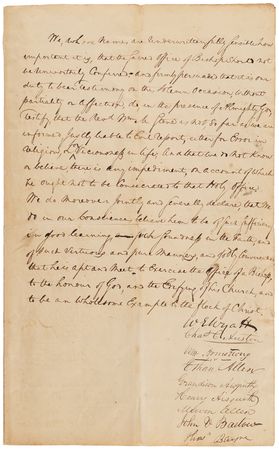 We, whose Names are Underwritten fully sensible how
important it is, that the Sacred Office of Bishop should not
be unworthily Conferred and firmly persuaded that it is our
duty to bear testimony on this Solemn Occasion without
partiality or affection, do in the presence of Almighty God
testify that the Revd Mr is not so far as we are
informed Justly liable to Evil Report, either for Error in
religion, or Viciousness in life, And that we do not Know
or believe there is any impediment, on account of which
he ought not to be Consecrated to that Holy Office.
We do Moreover Jointly and severally declare that We
do in our Conscience believe him to be of such sufficiency
in good learning, such soundness in the Faith, and
of such Virtuous and pure Manners, and Godly Conversation
that he is apt and Meet to Exercise the Office of a Bishop,
to the honour of God, and the Edifying of his Church, and
to be an wholesome Example to the flock of Christ.
W E Wyatt
Chas C Austin
Wm Armstrong
Ethan Allen
Grandison Aisquith
Henry Aisquith
Allen
John D Barlow